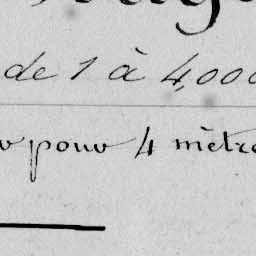 de 1 à 4,000
pour 4 mètre